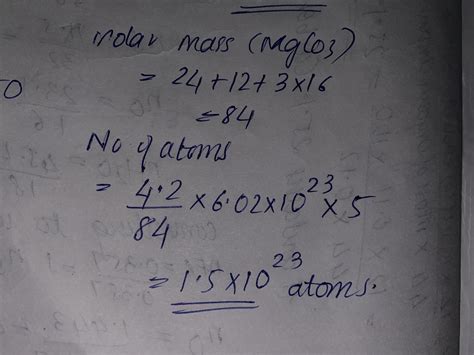 molar mass (MgCO3)
= 24+12+3×16
= 84
No of atoms
= 4.2/84 × 6.02×10^23 × 5
= 1.5×10^23 atoms.